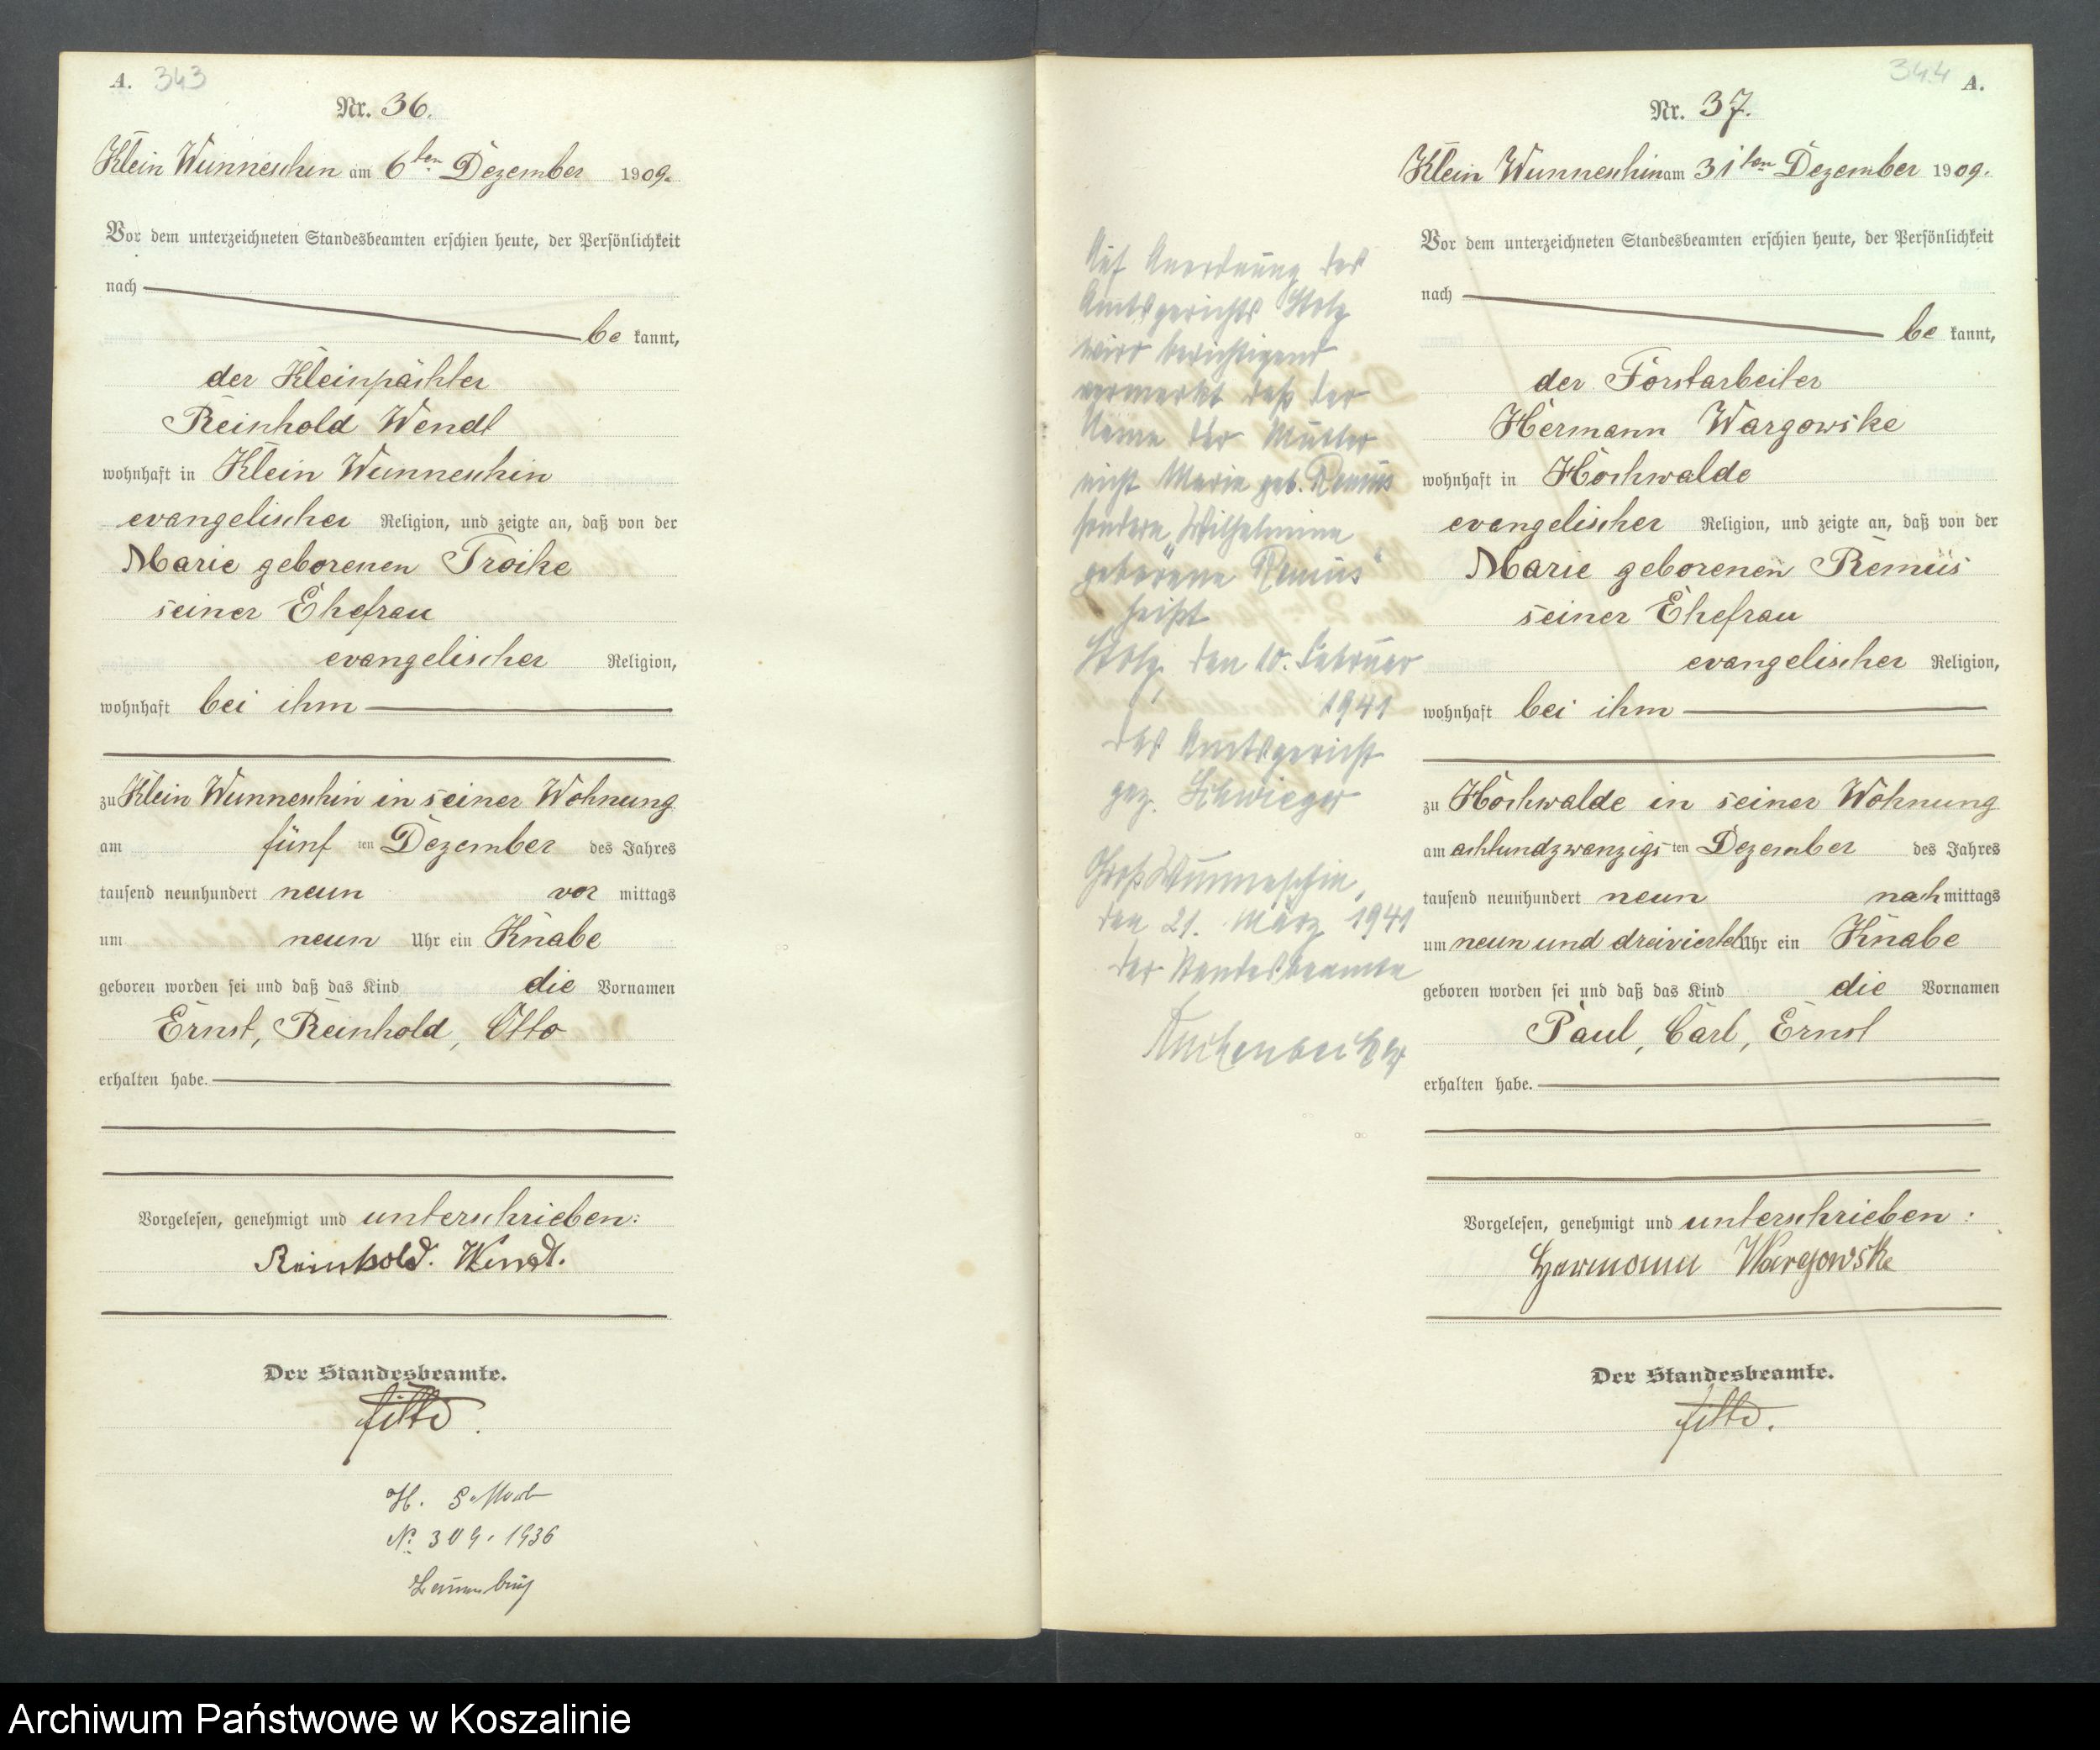 A. 343
Nr. 36.
Klein Wunneschin am 6ten Dezember 1909.
Vor dem unterzeichneten Standesbeamten erschien heute, der Persönlichkeit
nach
be kannt,
der Kleinpächter
Reinhold Wendt
wohnhaft in Klein Wunneschin
evangelischer Religion, und zeigte an, daß von der
Marie geborenen Troike
seiner Ehefrau
evangelischer Religion,
wohnhaft bei ihm
zu Klein Wunneschin in seiner Wohnung
am fünf ten Dezember des Jahres
tausend neunhundert neun vor mittags
um neun Uhr ein Knabe
geboren worden sei und daß das Kind die Vornamen
Ernst, Reinhold, Otto
erhalten habe.
Vorgelesen, genehmigt und unterschrieben:
Reinhold. Wendt.
Der Standesbeamte.
H.
No 309. 1936
Lauenburg
344 A.
Nr. 37.
Klein Wunneschin am 31ten Dezember 1909.
Vor dem unterzeichneten Standesbeamten erschien heute, der Persönlichkeit
nach
be kannt,
der Forstarbeiter
Hermann Wargowske
wohnhaft in Hochwalde
evangelischer Religion, und zeigte an, daß von der
Marie geborenen Remus
seiner Ehefrau
evangelischer Religion,
wohnhaft bei ihm
zu Hochwalde in seiner Wohnung
am achtundzwanzigs ten Dezember des Jahres
tausend neunhundert neun nach mittags
um neun und dreiviertel Uhr ein Knabe
geboren worden sei und daß das Kind die Vornamen
Paul, Carl, Ernst
erhalten habe.
Vorgelesen, genehmigt und unterschrieben:
Hermann Wargowske
Der Standesbeamte.
Auf Anordnung des
Amtsgerichts Stolp
wird berichtigend
vermerkt daß der
Name der Mutter
nicht Marie geb. Remus
sondern "Wilhelmine
geborene Remus"
heißt
Stolp, den 10. Februar
1941
Das Amtsgericht
gez. Schwieger
Groß Wunneschin,
den 21. März 1941
Der Standesbeamte
Archiwum Państwowe w Koszalinie